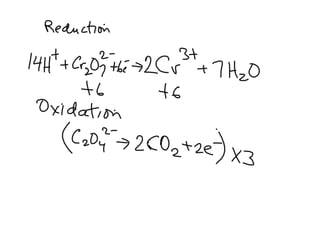 Reduction
14H⁺ + Cr₂O₇²⁻ + 6e⁻ → 2Cr³⁺ + 7H₂O
+6 +6
Oxidation
(C₂O₄²⁻ → 2CO₂ + 2e⁻) x3